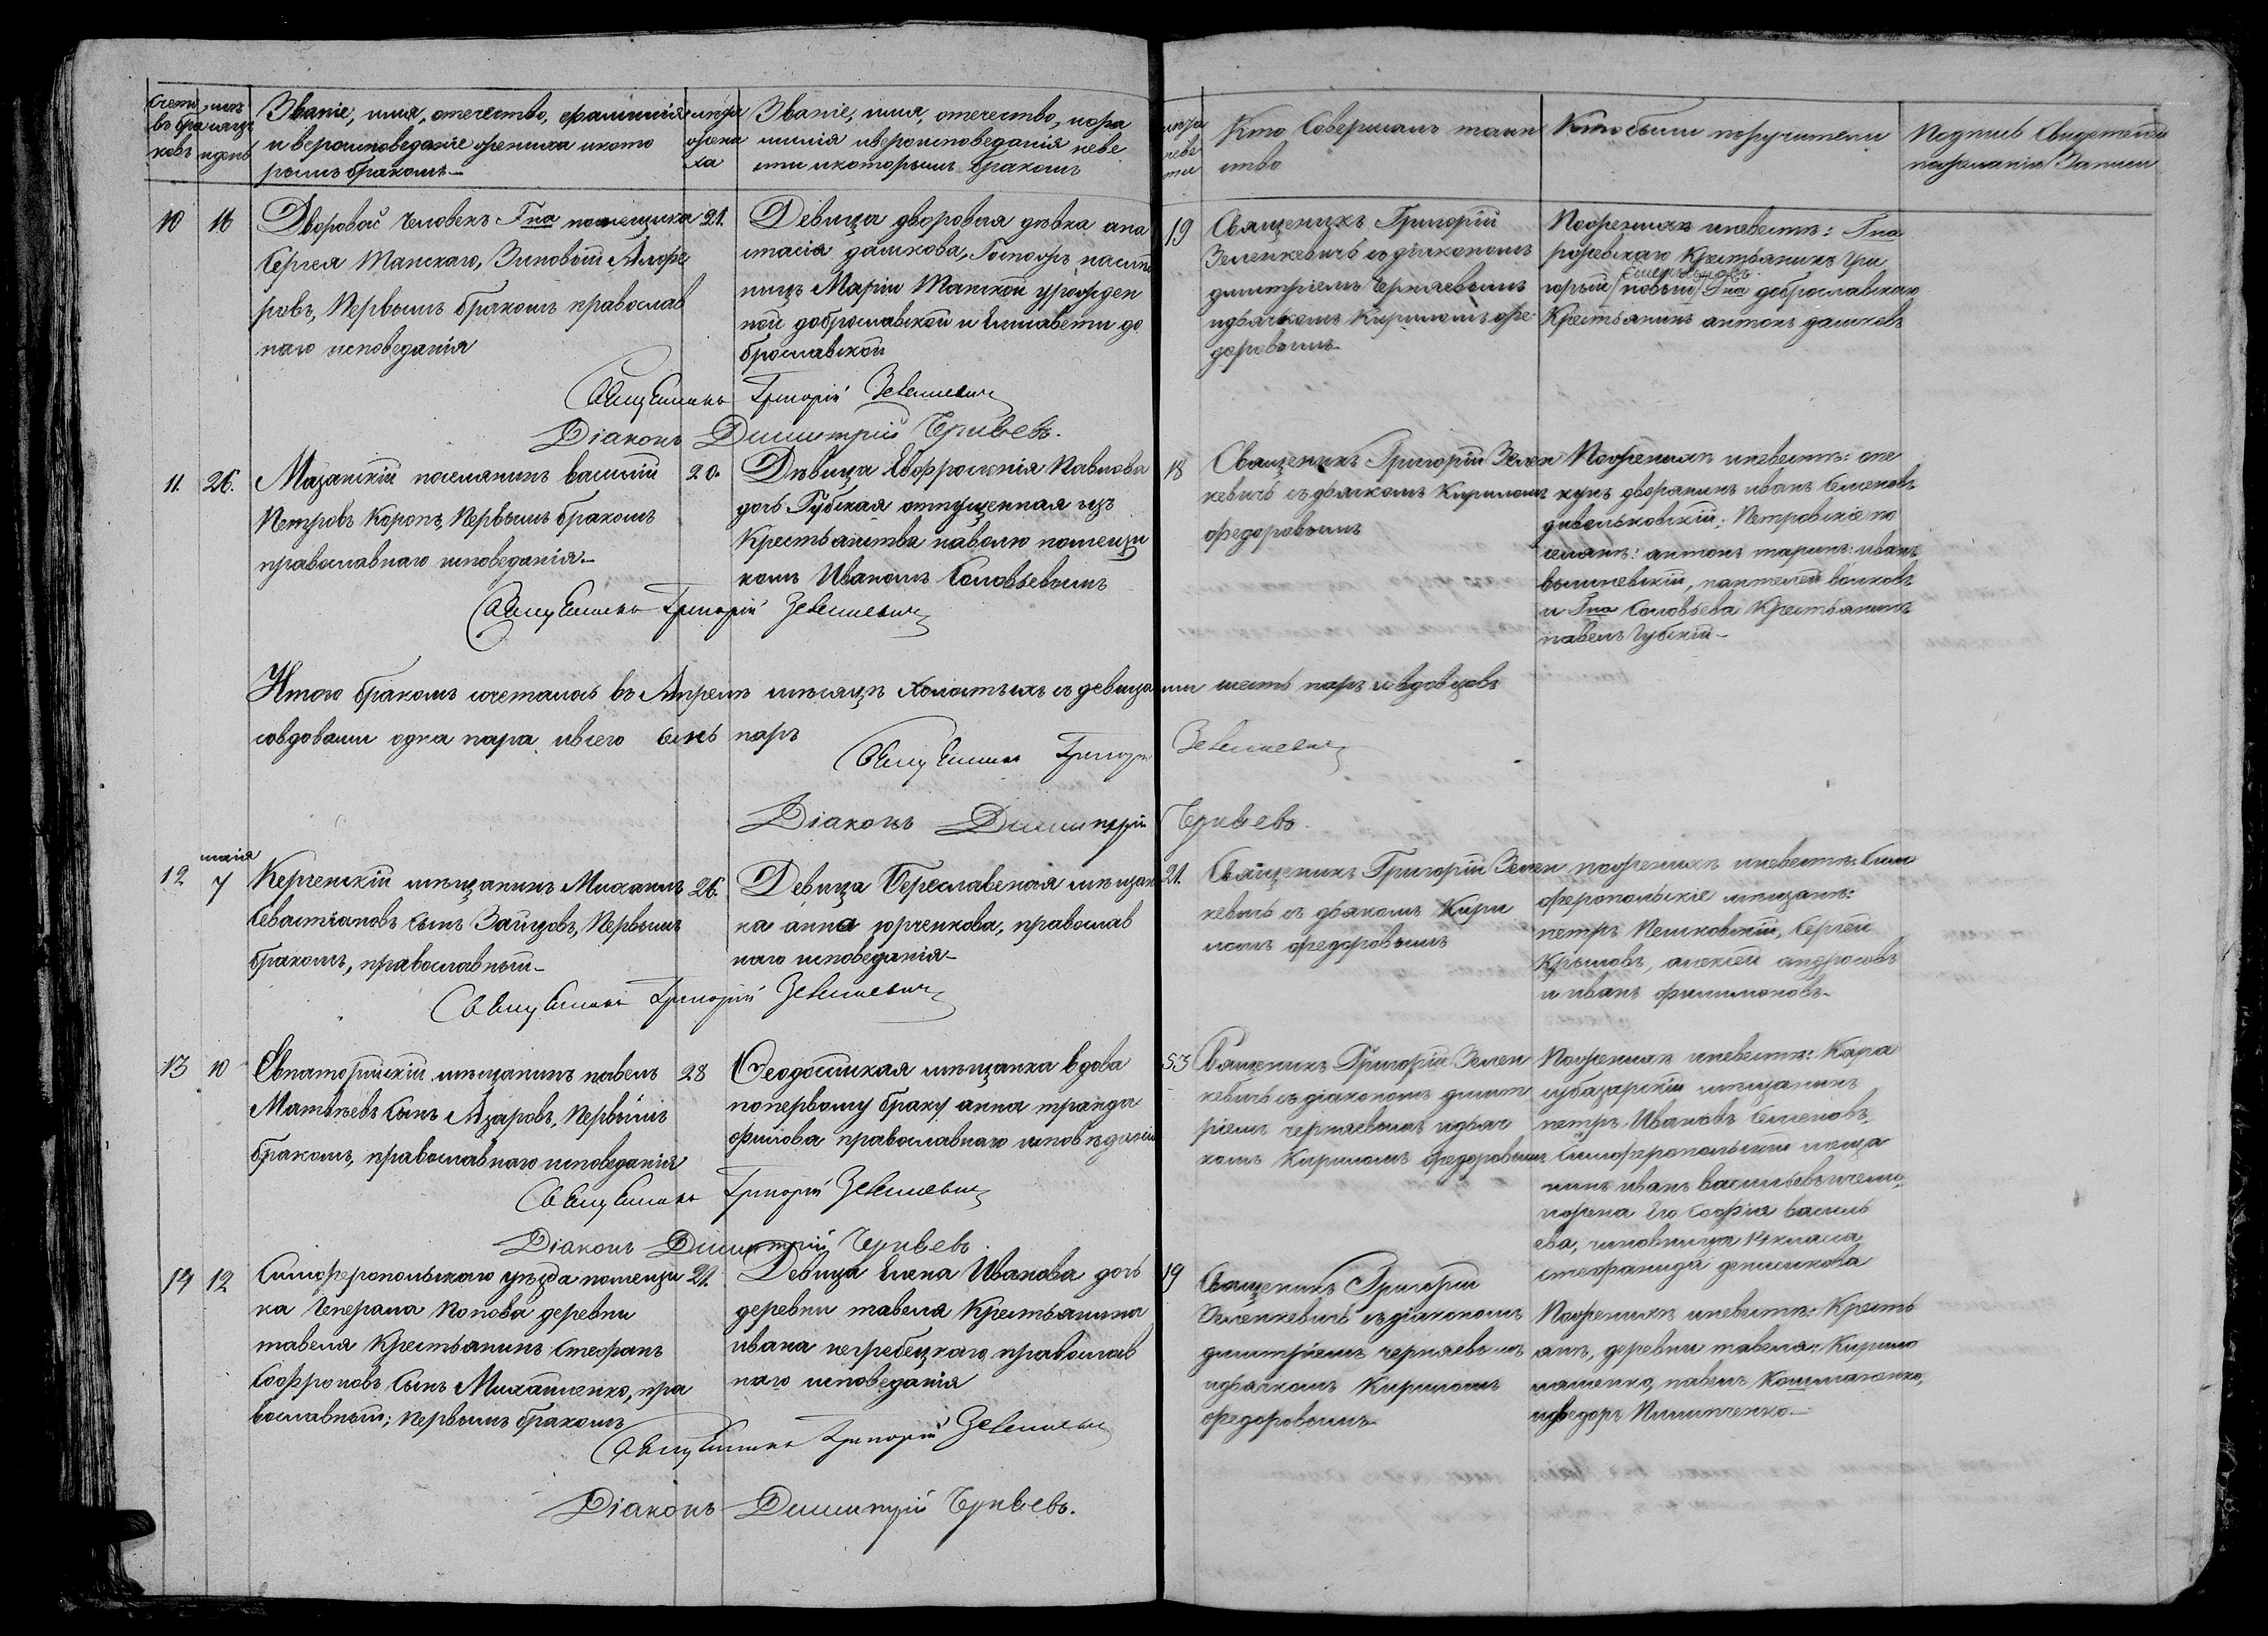 Счетъ
въ бра
ковъ
мѣ
сяцъ
и день
Званіе, имя, отечество, фамилія
и вероисповедание жениха и кото
рымъ бракомъ
лѣта
жени
ха
Званіе, имя, отечество, и фа
милія и вероисповедания неве
сти и которымъ бракомъ
лѣта
неве
сти
Кто Совершалъ таин
ство
Кто были поручители
Подпись Свидетелей
по желанію Записи
10
16
Дворовой Человекъ Гна помещика
Сергея Танскаго, Зиновый Алфе
ровъ, Первымъ бракомъ православ
наго исповедания
21.
Девица дворовая дѣвка ана
стасія дашкова, Госпожъ наслѣд
ницъ Маріи Танской урожден
ной доброславской и Елисавети до
брославской
19
Священикъ Григорій
Зеленкевичъ съ діякономъ
димитріемъ Черняевымъ
и дьячкомъ Кириломъ фе
доровымъ
По женихѣ и невестѣ: Гна
Крестьянинъ гри
горый Гна доброславскаго
Крестьянинъ антонъ дашковъ
Священникъ Григорій Зеленкевичъ
Діаконъ Димитрій Черняевъ.
11.
26.
Мазанскій поселянинъ василій
Петровъ Коропъ, Первымъ бракомъ
православнаго исповедания.
20.
Дѣвица Евфросинія Павлова
дочь Губская отпущенная изъ
Крестьянства на волю помещи
комъ Иваномъ Соловьевымъ
18
Священикъ Григорій Зелен
кевичъ съ дьячкомъ Кириломъ
федоровымъ
По женихѣ и невестѣ: опе
кунъ дворянинъ иванъ Семеновъ
Петровскіе по
селяне: антонъ таринъ: иванъ
вышневскій, пантелей волковъ
и Гна Соловьева Крестьянинъ
павелъ Губскій
Священникъ Григорій Зеленкевичъ
Итого бракомъ сочеталось въ Апрелѣ мѣсяцѣ холостыхъ съ девицами шесть паръ и вдовцовъ
со вдовами одна пара, и всего семь паръ
Священникъ Григорій Зеленкевичъ
Діаконъ Димитрій Черняевъ.
12
маія
7
Керченскій мѣщанинъ Михаилъ
Севастіановъ Сынъ Зайцовъ, Первымъ
бракомъ, православный
26.
Девица Береславская мѣщан
ка анна юрченкова, православ
наго исповедания
21.
Священикъ Григорій Зелен
кевичъ съ дьякомъ Кири
ломъ федоровымъ
по женихѣ и невестѣ: Сим
ферополскіе мѣщане:
петръ Пешковскій, Сергей
Крыловъ, алексей андросовъ
и иванъ филимоновъ
Священникъ Григорій Зеленкевичъ
13
10
Евпаторійскій мѣщанинъ павелъ
Матвѣевъ Сынъ Азаровъ, Первымъ
бракомъ, православнаго исповедания
28
Феодосийская мѣщанка вдова
по первому браку анна транда
филова православнаго исповѣдания
53
Священикъ Григорій Зелен
кевичъ съ діакономъ димит
ріемъ черняевымъ и дьяч
комъ Кириломъ федоровымъ
По женихѣ и невестѣ: Кара
субазарскій мѣщанинъ
петръ Ивановъ Семеновъ,
Симферопольскій меща
нинъ иванъ васильевъ
жена Его Софія василь
ева, чиновница 14 класа
стефанида
Священникъ Григорій Зеленкевичъ
Діаконъ Димитрій Черняевъ
14
12
Симферопольскаго уѣзда помещи
ка Генерала Попова деревни
тавеля Крестьянинъ Стефанъ
Софроновъ Сынъ Михайленко, пра
вославный; Первымъ бракомъ
21.
Девица Елена Иванова дочь
деревни тавеля Крестьянина
ивана негребецкаго, православ
наго исповедания
19
Священикъ Григорій
Зеленкевичъ съ діакономъ
димитріемъ черняевымъ
и дьячкомъ Кириломъ
федоровымъ
По женихѣ и невестѣ: Кресть
яне, деревни тавеля: Кирило
павелъ
и федоръ Пилипченко.
Священникъ Григорій Зеленкевичъ
Діаконъ Димитрій Черняевъ.